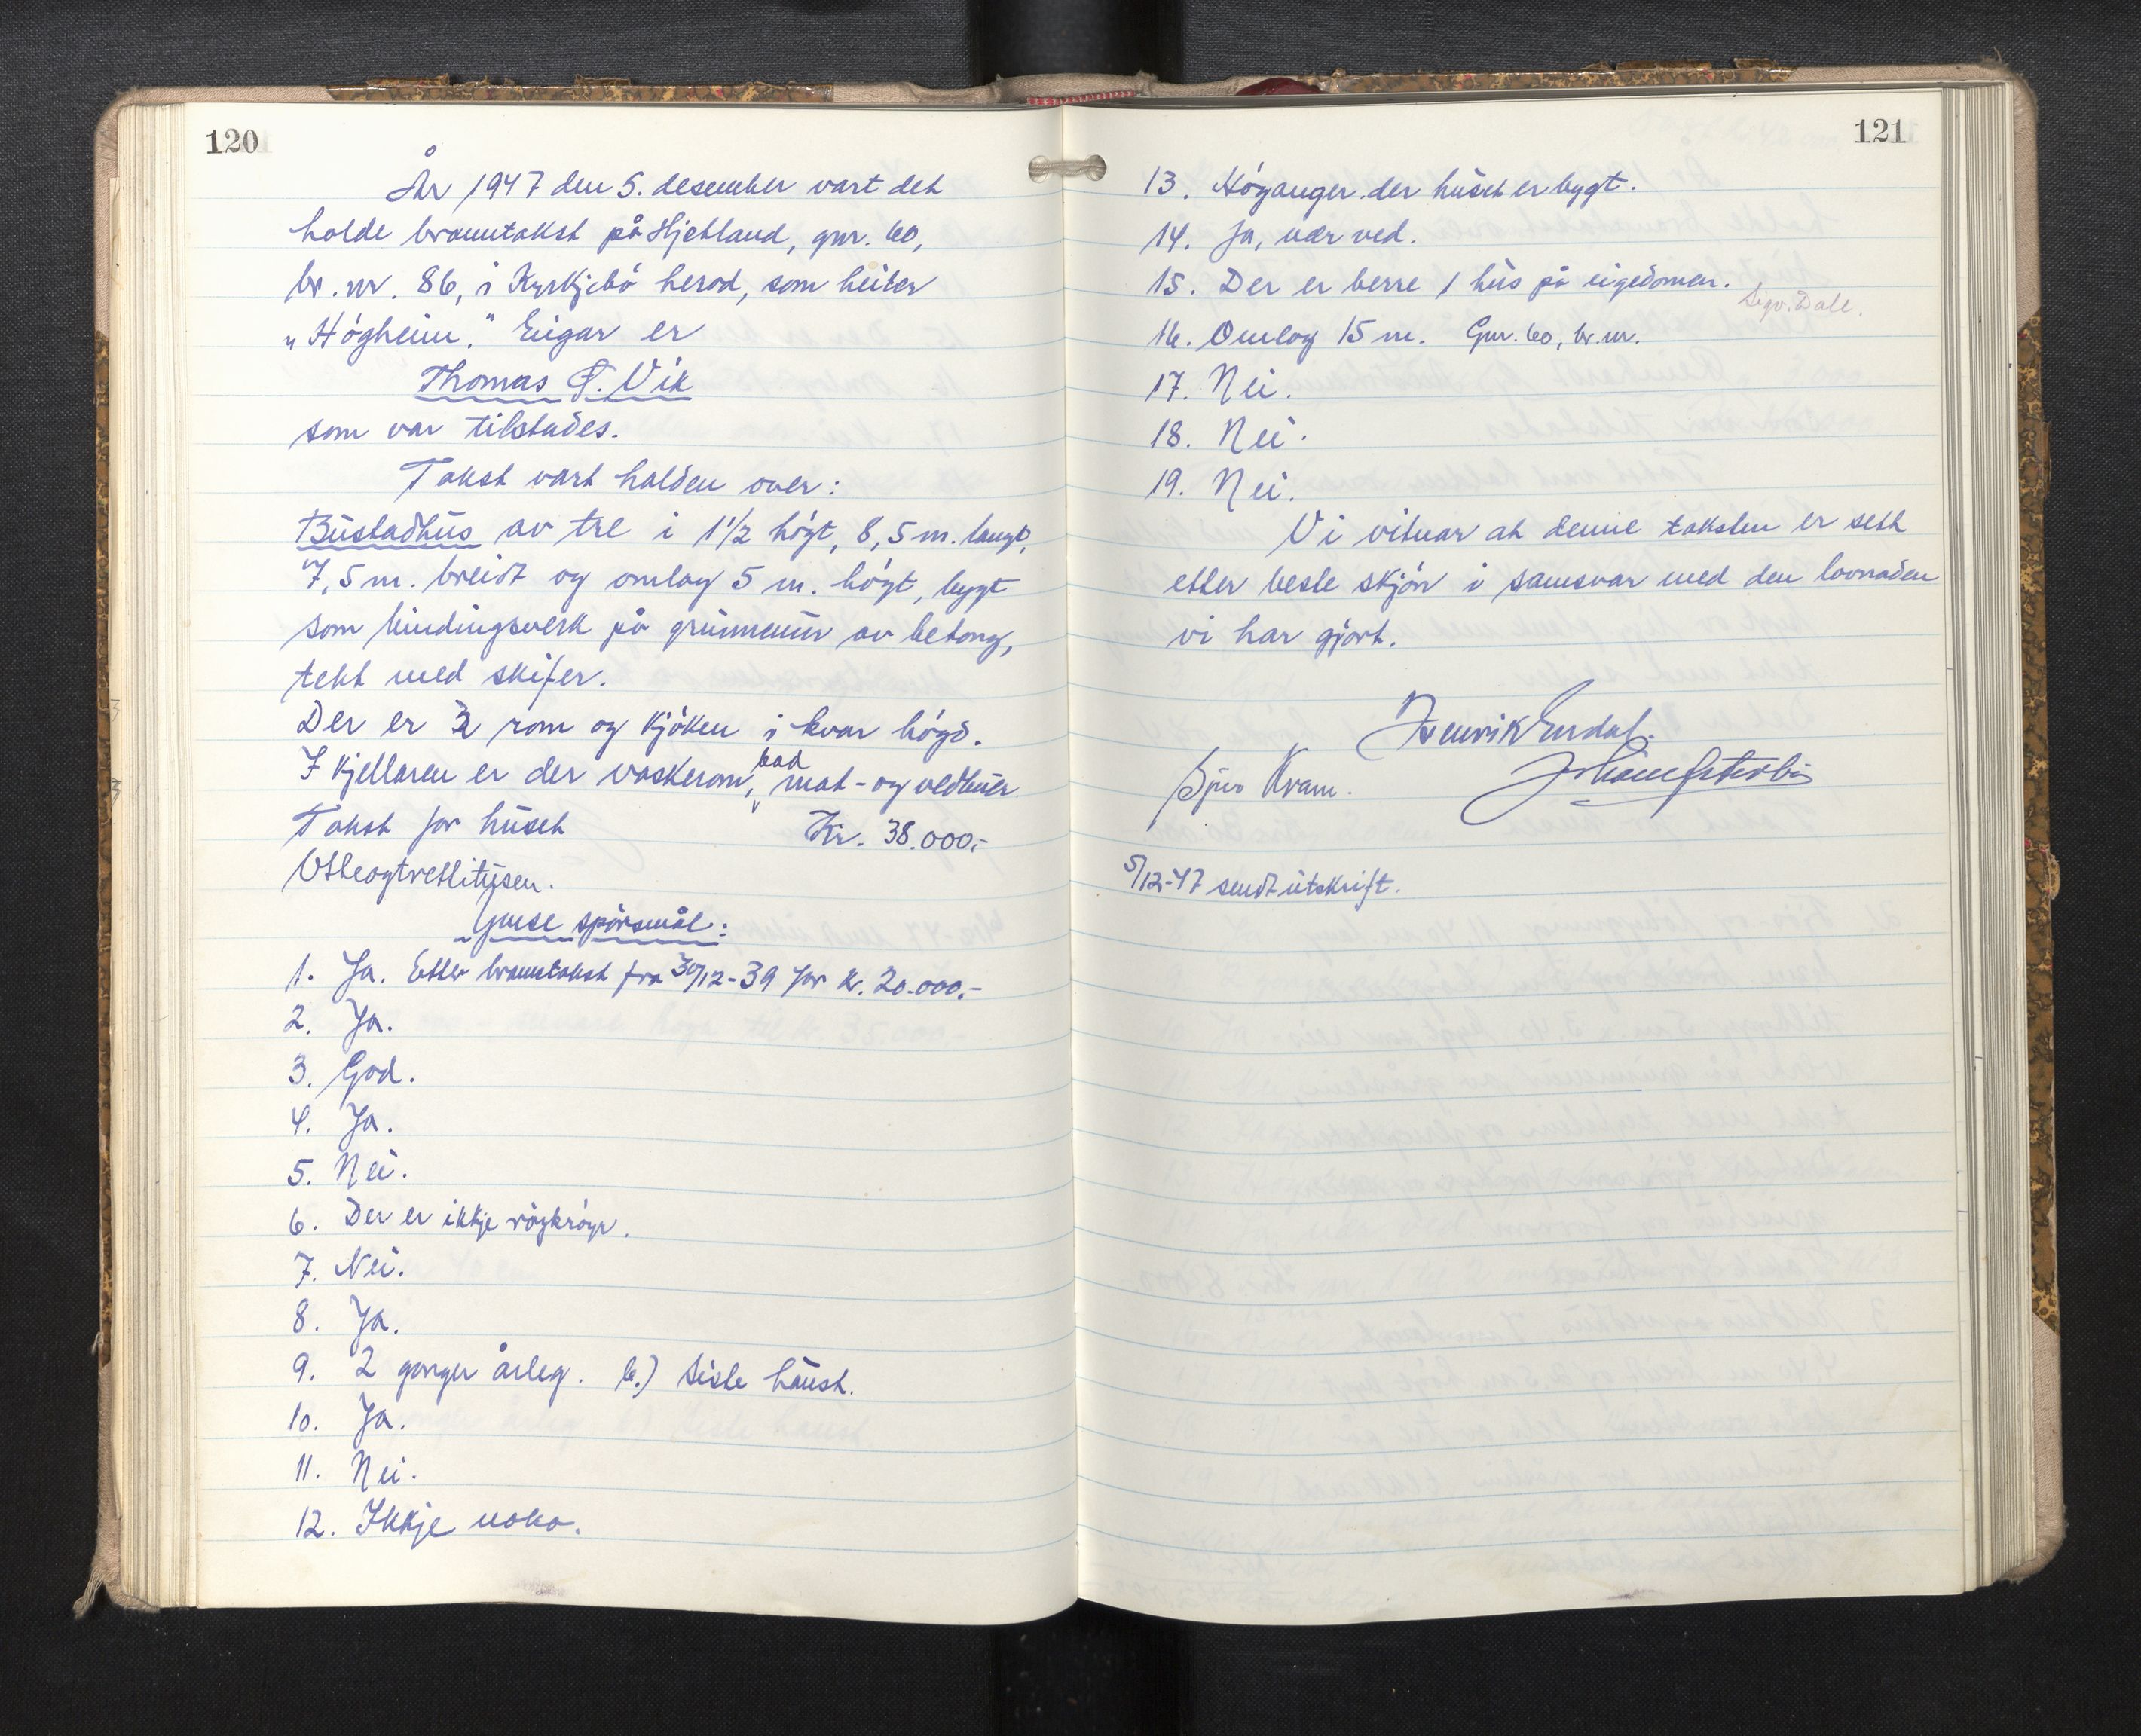 120
År 1947 den 5. desember vart det
holde branntakst på Hjetland, gnr. 60,
br. nr. 86, i Kyrkjebö herad, som heiter
„Högheim." Eigar er
Thomas T. Vik
som var tilstades.
Takst vart halden over:
Bustadhus av tre i 1 1/2 högt, 8,5 m. langt,
7,5 m. breidt og omlag 5 m. högt, bygt
som bindingsverk på grunnmur av betong,
tekt med skifer.
Der er 3 rom og kjöken i kvar högd.
I kjellaren er der vaskerom, bad mat- og vedbuer
Takst for huset Kr. 38.000,-
Åtteogtrettitusen.
Ymse spörsmål:
1. Ja. Etter branntakst fra 30/12-39 for kr. 20.000.-
2. Ja.
3. God.
4. Ja.
5. Nei.
6. Der er ikkje röykröyr.
7. Nei.
8. Ja.
9. 2 gonger årleg. b.) Siste haust.
10. Ja.
11. Nei.
12. Ikkje noko.
121
13. Höyanger der huset er bygt.
14. Ja, uær ved.
15. Der er berre 1 hus på eigedomen.
Sigv. Dale.
16. Omlag 15 m. Gnr. 60, br. nr.
17. Nei.
18. Nei.
19. Nei.
Vi vitnar at denne taksten er sett
etter beste skjön i samsvar med den lovnaden
vi har gjort.
Henrik Erdal.
Sjur Kvam. Johan Østerbø
5/12-47 sendt utskrift.